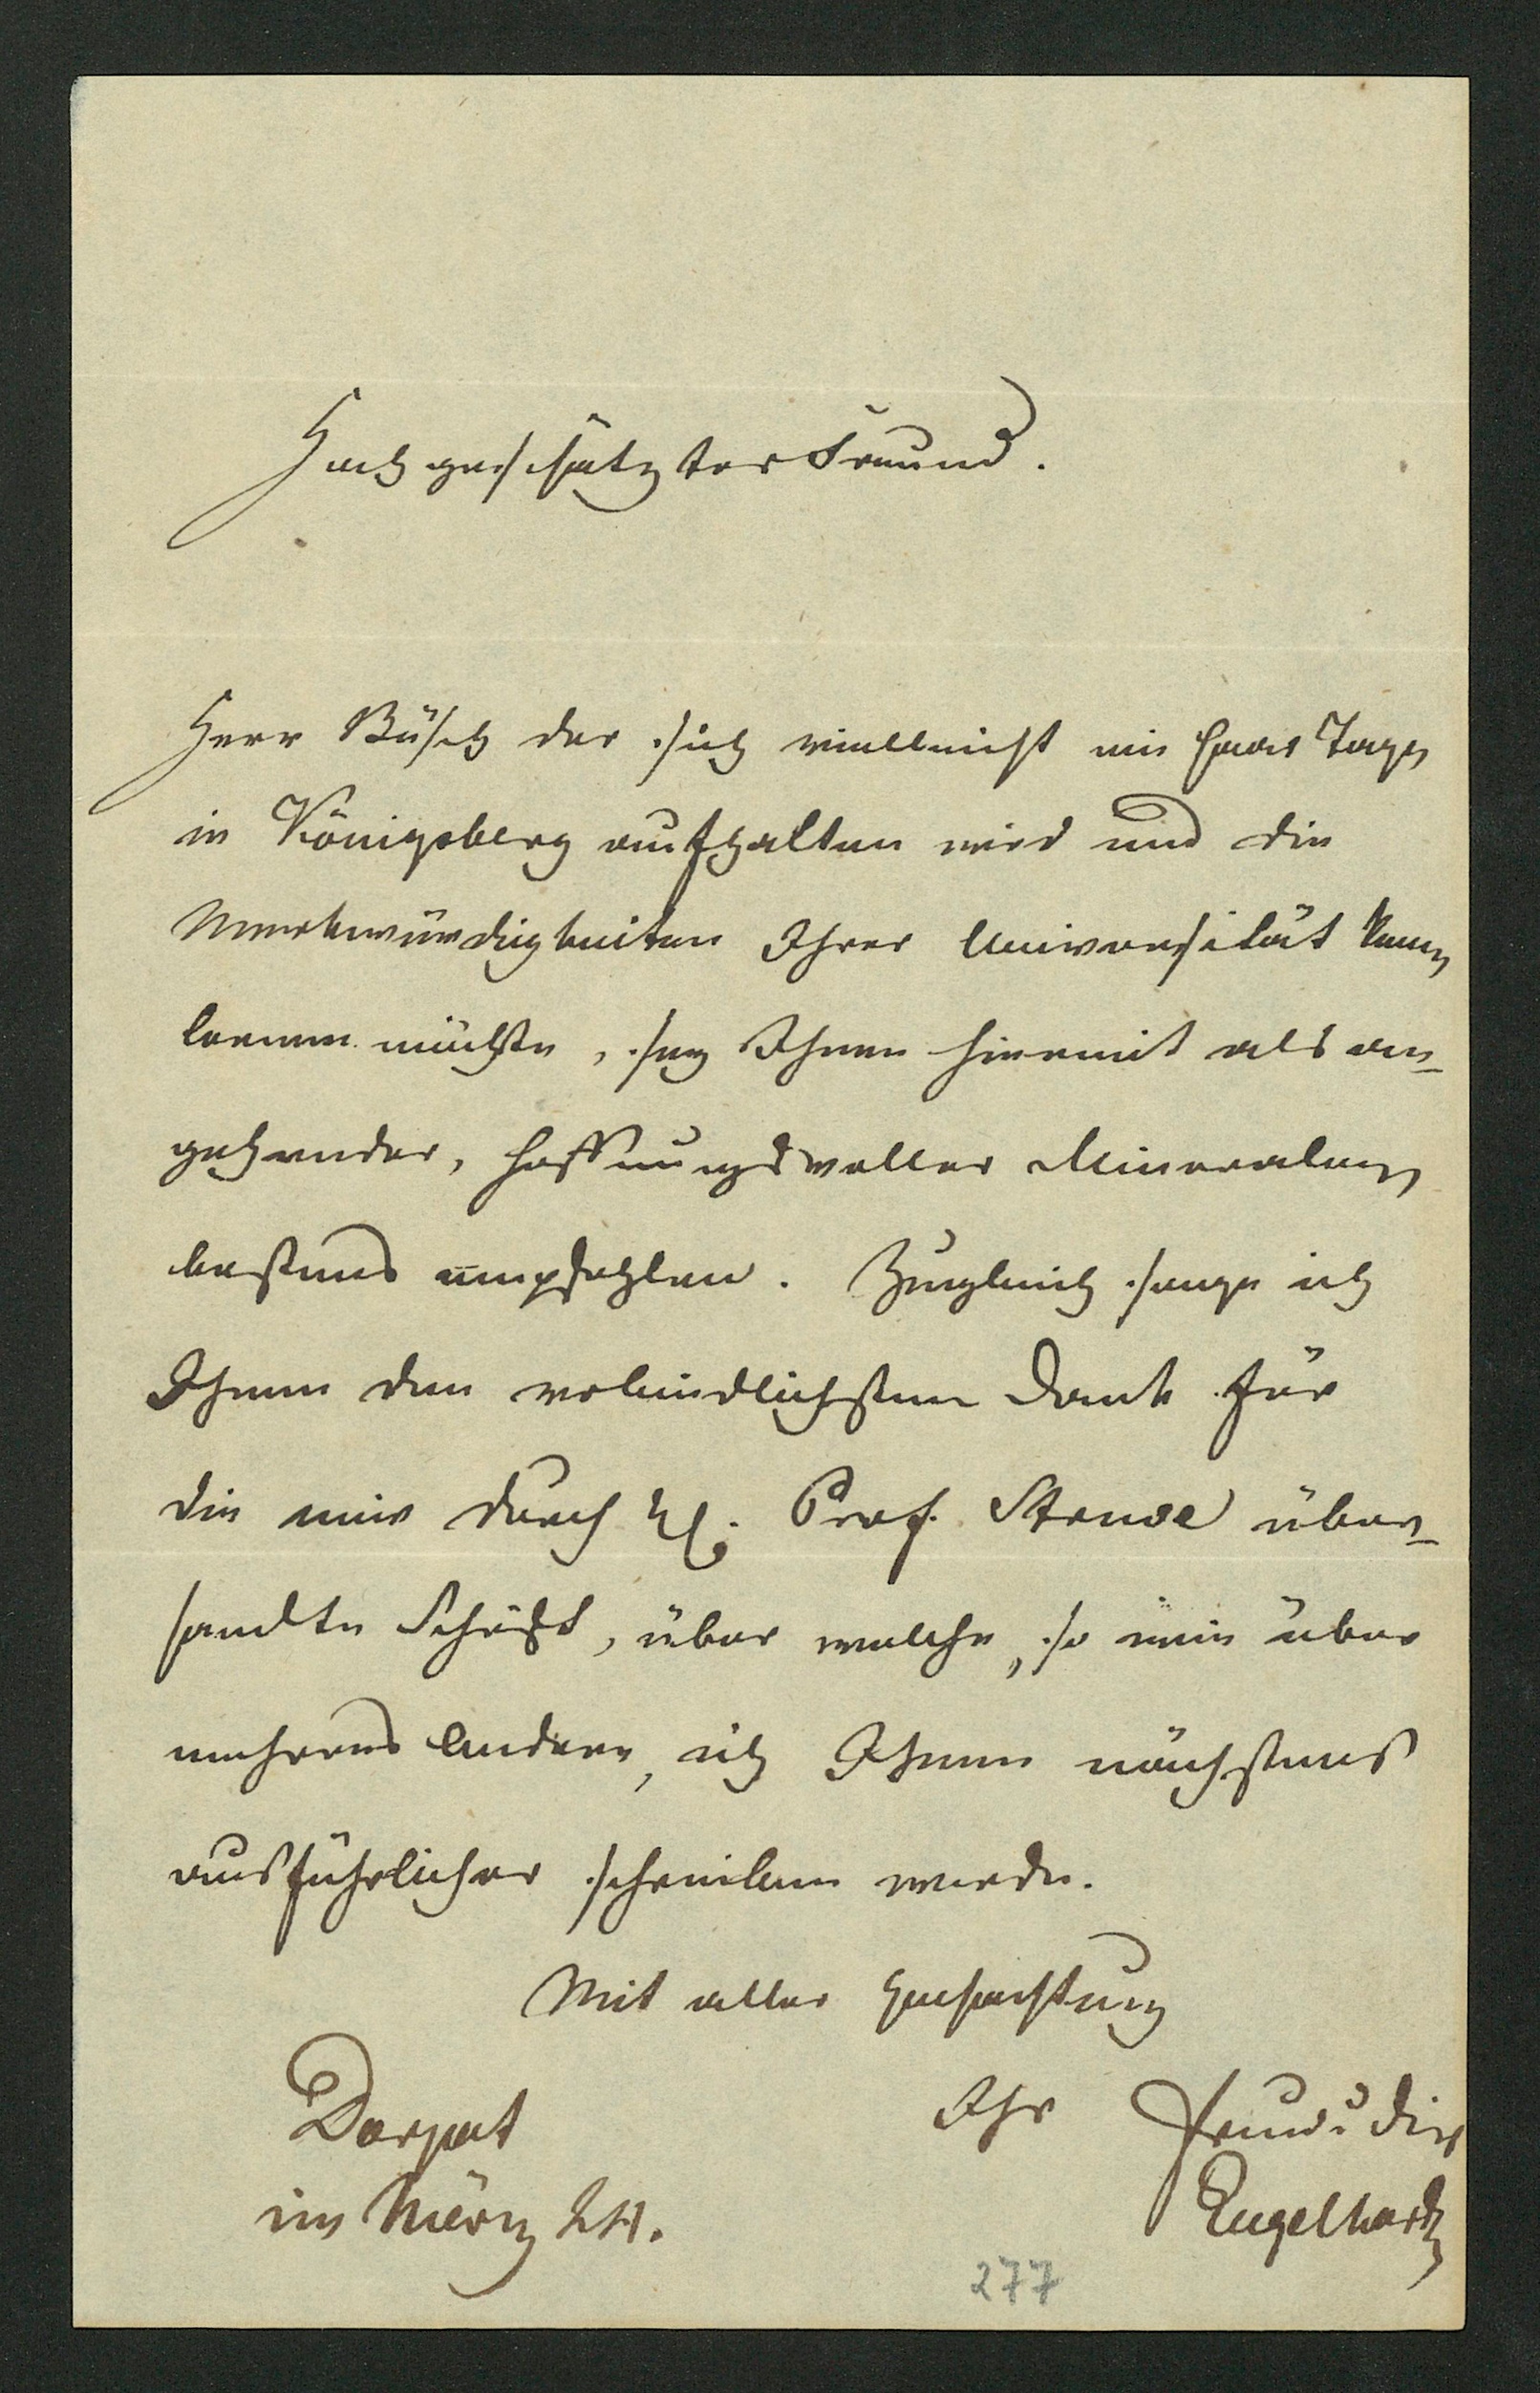 Hochgeschätzter Freund.
Herr Büsch der sich vielleicht ein Paar Tage
in Königsberg aufhalten wird und die
Merkwürdigkeiten Ihrer Universität kennen
lernen möchte, sey Ihnen hiermit als an-
gehender, hoffnungsvoller Mineralog
bestens empfohlen. Zugleich sage ich
Ihnen den verbindlichsten Dank für
die mir durch H. Prof. Struve über-
sandte Schrift, über welche, so wie über
mehreres Andere, ich Ihnen nächstens
ausführlicher schreiben werde.
Mit aller Hochachtung
Ihr
Dorpat
im März 24.
Engelhardt
277